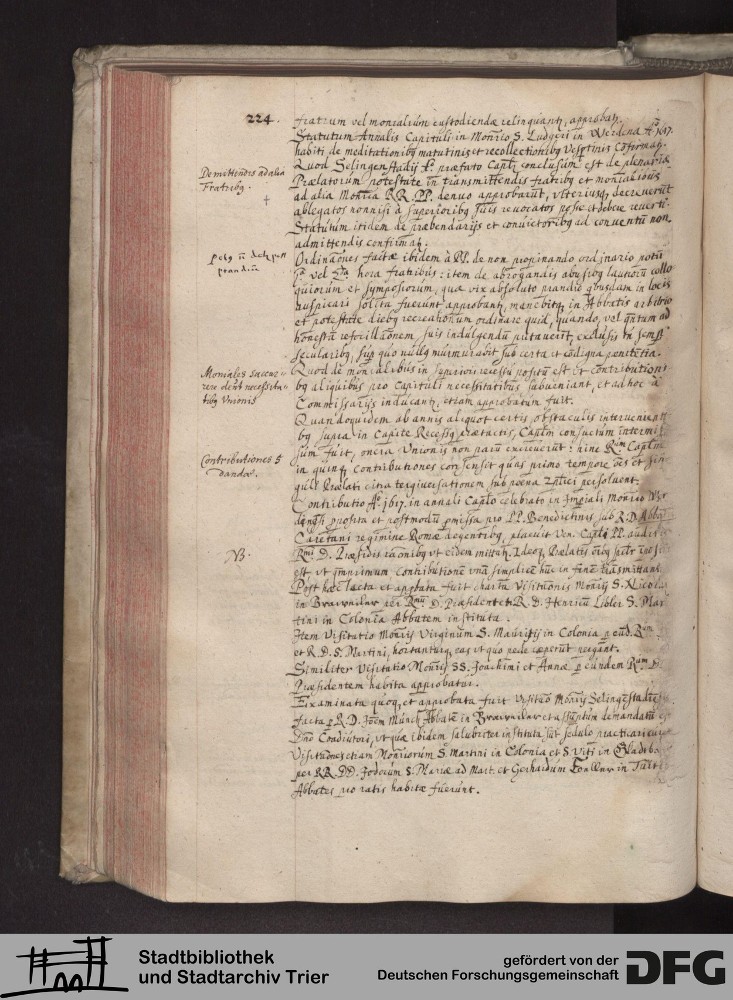 224.
fratrum vel monialium custodiendæ relinquant, approbat.
Statutum Annalis Capituli in Monrio S. Ludgeri in Werdena Aº 1617.
habiti de meditationibq matutinis et recollectionibq vespertinis cōformatʒ.
De mittendis ad alia
Fratribq.
†
Quod Selingenstadij præfato Captˡi conclusum est de plenaria
Prælatorum potestate in transmittendis fratribq et monialibus
ad alia Monria RR. PP. denuo approbarūt, ulteriusq decreverūt
ablegatos nonnisi à superioribq suis revocatos posse et debere reverti.
Statutum itidem de præbendarijs et convictoribq ad conventū non
admittendis confirmatʒ.
Ordinaōnes factæ ibidem à PP. de non propinando ordinario potū
vel hora fratribus: item de abrogandis abusibq lautiorū collo
quiorum et symposiorum, quæ vix absoluto prandio qbusdam in locis
auspicari solita fuerunt approbantʒ, manebitq in Abbatis arbitrio
et potestate diebq recreationum ordinare quid, quando, vel qntum ad
honestā refocillaōnem, suis indulgendū putaverit, exclusis tn semp
secularibq, sup quo nullq murmurabit sub certa et cōdigna penitētia.
Moniales succur=
rere debēt necessita=
tibq Unionis
Quod de monialibus in superiori recessu positū est ut contribution
bq aliquibus pro Capituli necessitatibus subveniant, et ad hoc à
Commissarijs inducantʒ, etiam approbatum fuit.
Quandoquidem ab annis aliquot certis obstaculis intervenienti
bq supra in Capite Recessq exactis, Captm consuetum intermis
sum fuit, onera Unionis non parū excreverūt: hinc Rm Captm
Contributiones 5
dandæ.
in quinq contributiones consensit quas primo tempore oēs et sin
guli Prælati citra tergiversationem sub poena dupli persolvent.
Contributio Aº 1617. in annali Captlo celebrato in Imperiali Monrio Wer
dinensi pposita et postmodū pmissa pro PP. Benedictinis sub R. D. Abb
Caietani regimine Romæ degentibq, placuit Ven. Captlo PP. audit
NB.
Rmi D. Præsidis raōnibq ut eidem mittatʒ. Ideoq Prælatis oibq
est ut qmprimum contributionē unā simplicē huc in finē transmittant
Post hæc lecta et approbata fuit charta Visitationis Monrij S. Nicolai
in Brawweiler per Rmū D. Præsidentē et R. D. Henricū Libler S. Mar
tini in Colonia Abbatem instituta.
Item Visitatio Monrij Virginum S. Mauritij in Colonia p eund. Rm
et R. D. S. Martini, hortanturq eas ut quo pede cœperūt pergant.
Similiter Visitatio Monrij SS. Joachimi et Annæ p eundem Rm D.
Præsidentem habita approbatur.
Examinata quoq et approbata fuit Visitatio Monrij Selingestadien
facta p R. D. Joēm Münch Abbatē in Brawweiler
Dno Coadiutori, ut quæ ibidem salubriter instituta sūt sedulo practicari cu
Visitationes etiam Monriorum S. Martini in Colonia et S. Viti in Gladeba
per RR. DD. Jodocum S. Mariæ ad Mart. et Gerhardum in Tuit
Abbates pro ratis habitæ fuerunt.
Stadtbibliothek
und Stadtarchiv Trier
gefördert von der
Deutschen Forschungsgemeinschaft
DFG